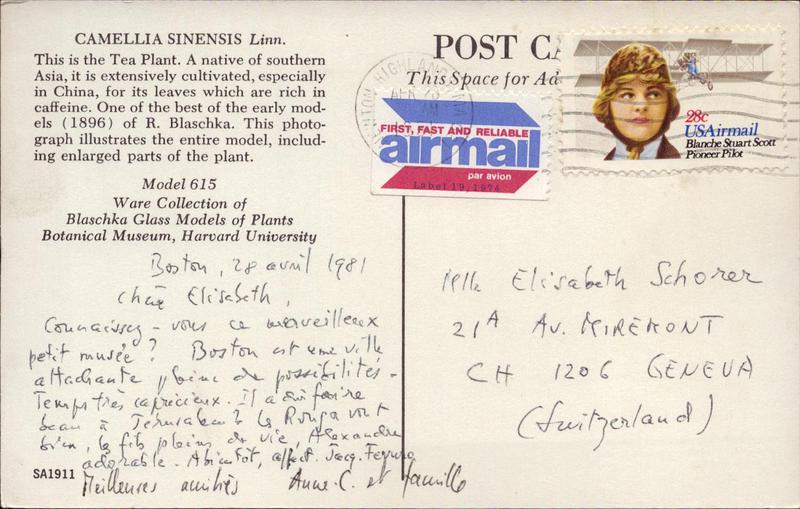 CAMELLIA SINENSIS Linn.
This is the Tea Plant. A native of southern
Asia, it is extensively cultivated, especially
in China, for its leaves which are rich in
caffeine. One of the best of the early mod-
els (1896) of R. Blaschka. This photo-
graph illustrates the entire model, includ-
ing enlarged parts of the plant.
Model 615
Ware Collection of
Blaschka Glass Models of Plants
Botanical Museum, Harvard University
Boston, 28 avril 1981
Chère Elisabeth,
Connaissez-vous ce merveilleux
petit musée? Boston est une ville
attachante pleine de possibilités.
Temps très capricieux. Il a dû faire
beau à Jerusalem? Le Rouga vont
bien, le fils pleins de vie, Alexandre
adorable. A bientôt, affect. Jacq.
Meilleures amitiés Anne-C. et famille
SA1911
POST CA
This Space for Ad
NEWTON HIGHLANDS
APR
AM
FIRST, FAST AND RELIABLE
airmail
par avion
Label 19, 1974
28c
USAirmail
Blanche Stuart Scott
Pioneer Pilot
Mlle Elisabeth Schorer
21A Av. MIREMONT
CH 1206 GENEVA
(Switzerland)